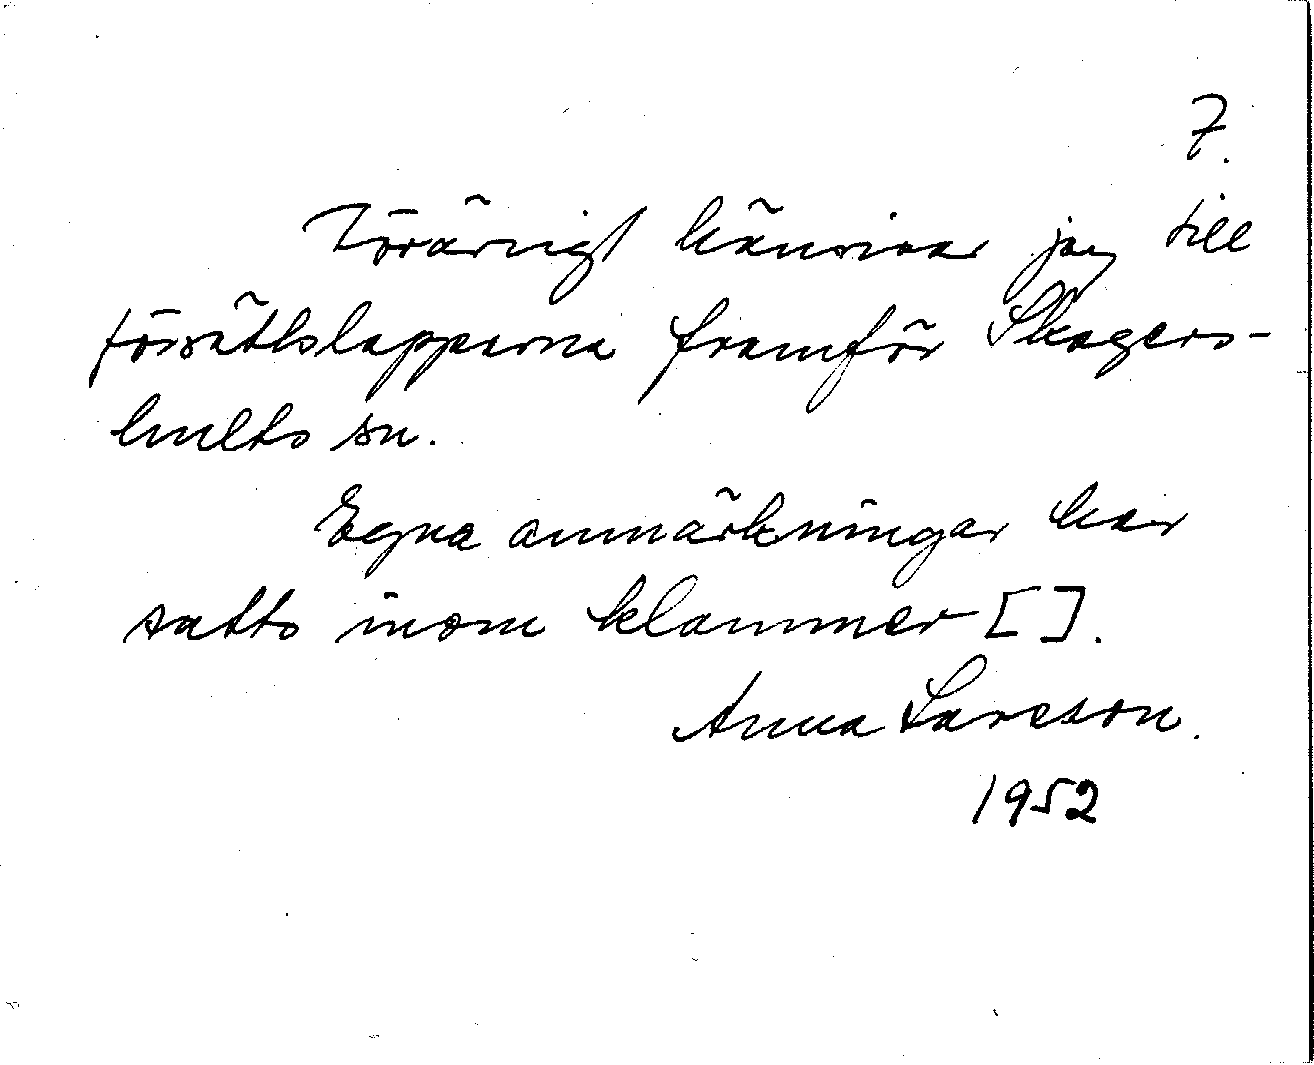 7.
I övrigt hänvisar jag till
försättslapparna framför Skagers-
hults sn.
Egna anmärkningar har
satts inom klammer [ ].
Anna Larsson.
1952